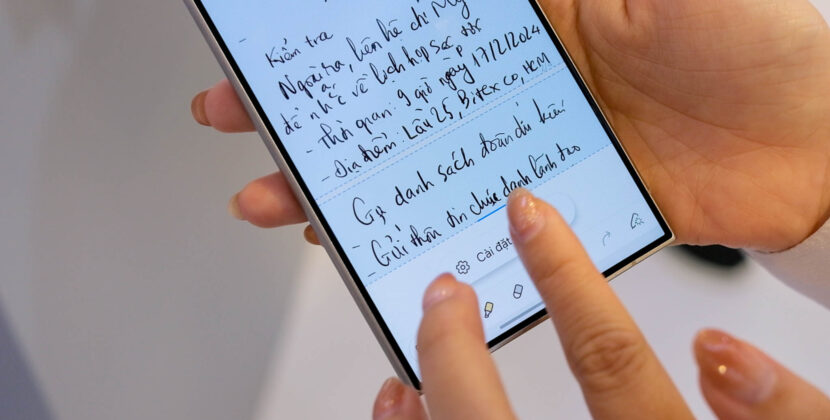 -
Kiểm tra
Ngoài ra, liên hệ chị Mỹ
để nhắc về lịch họp sắp tới
- Thời gian: 9 giờ ngày 17/2/2024
- Địa điểm: Lầu 25, Bitexco, HCM
Gp danh sách đoàn
- Gửi thông tin chức danh lãnh đạo
Cài đặt